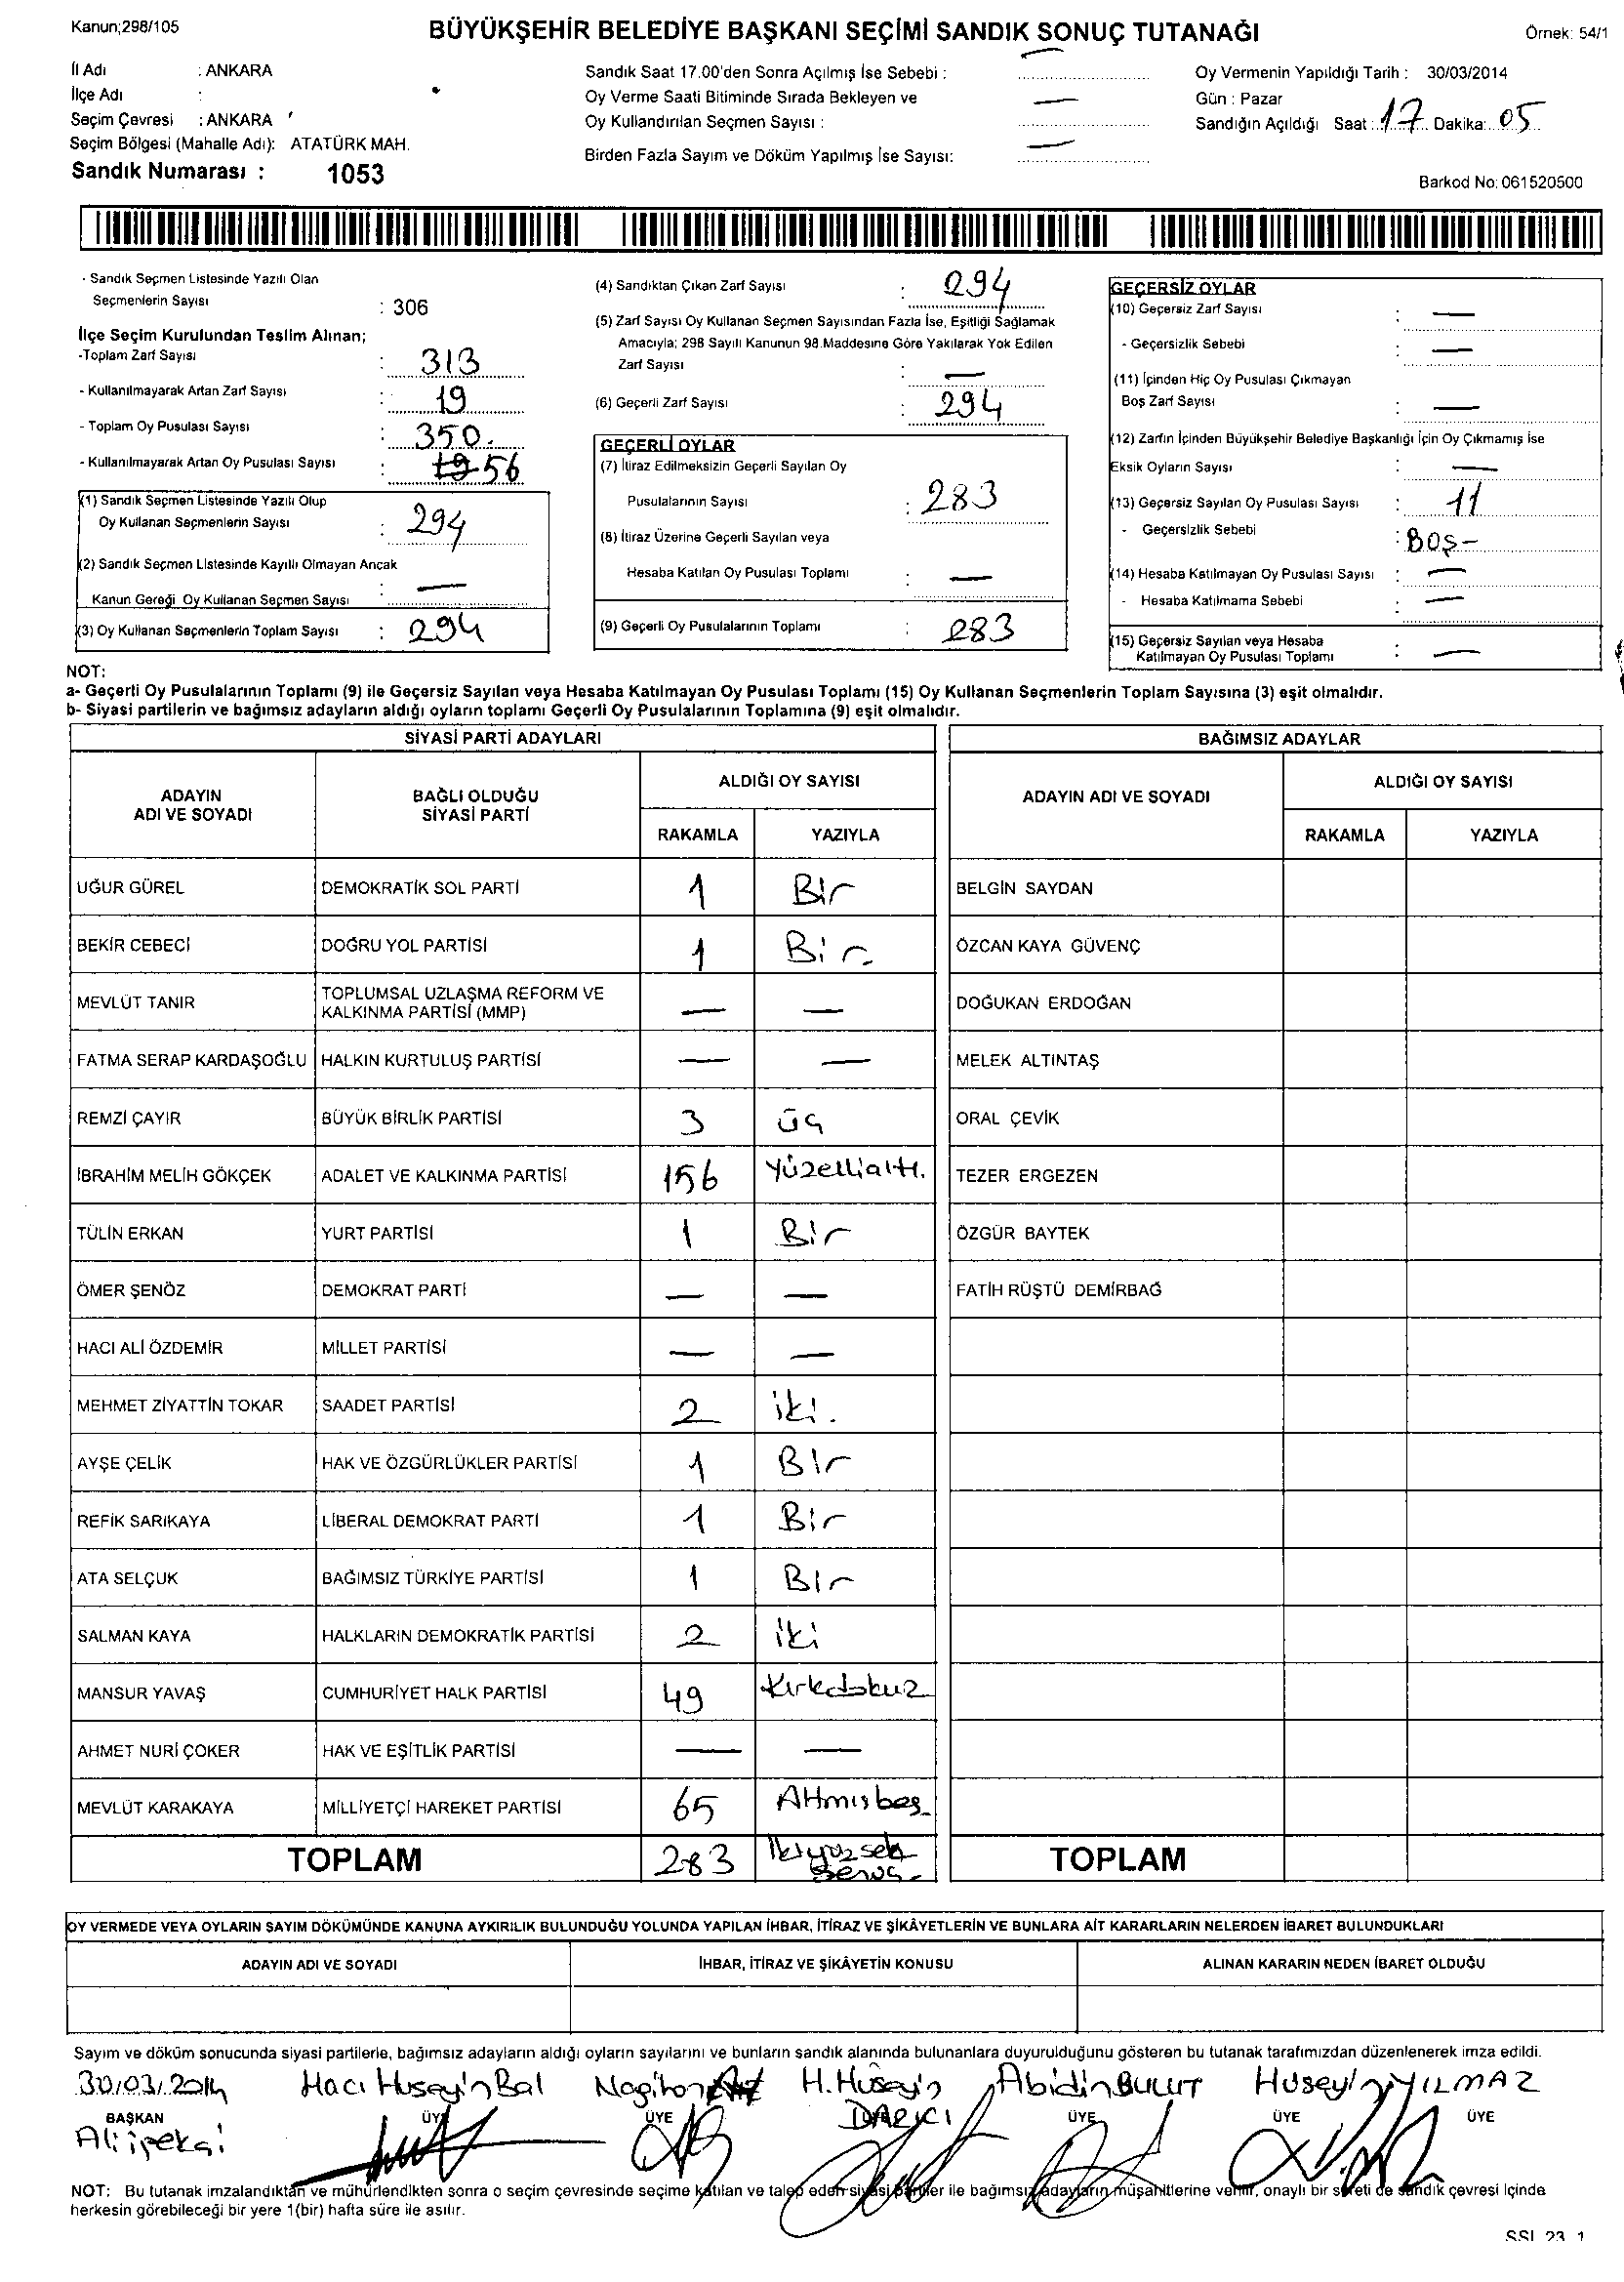 Kanun;298/105
BÜYÜKŞEHİR BELEDİYE BAŞKANI SEÇİMİ SANDIK SONUÇ TUTANAĞI
Örnek: 54/1
İl Adı : ANKARA
İlçe Adı :
Seçim Çevresi : ANKARA
Seçim Bölgesi (Mahalle Adı): ATATÜRK MAH.
Sandık Numarası : 1053
Sandık Saat 17.00'den Sonra Açılmış İse Sebebi : —
Oy Verme Saati Bitiminde Sırada Bekleyen ve
Oy Kullandırılan Seçmen Sayısı : —
Birden Fazla Sayım ve Döküm Yapılmış İse Sayısı: —
Oy Vermenin Yapıldığı Tarih : 30/03/2014
Gün : Pazar
Sandığın Açıldığı Saat : 17 Dakika: 05
Barkod No: 061520500
- Sandık Seçmen Listesinde Yazılı Olan
Seçmenlerin Sayısı : 306
İlçe Seçim Kurulundan Teslim Alınan;
-Toplam Zarf Sayısı : 313
- Kullanılmayarak Artan Zarf Sayısı : 19
- Toplam Oy Pusulası Sayısı : 350.
- Kullanılmayarak Artan Oy Pusulası Sayısı : 19 56
(1) Sandık Seçmen Listesinde Yazılı Olup
Oy Kullanan Seçmenlerin Sayısı : 294
(2) Sandık Seçmen Listesinde Kayılı Olmayan Ancak
Kanun Gereği Oy Kullanan Seçmen Sayısı : —
(3) Oy Kullanan Seçmenlerin Toplam Sayısı : 294
(4) Sandıktan Çıkan Zarf Sayısı : 294
(5) Zarf Sayısı Oy Kullanan Seçmen Sayısından Fazla İse, Eşitliği Sağlamak
Amacıyla; 298 Sayılı Kanunun 98.Maddesine Göre Yakılarak Yok Edilen
Zarf Sayısı : —
(6) Geçerli Zarf Sayısı : 294
GEÇERLİ OYLAR
(7) İtiraz Edilmeksizin Geçerli Sayılan Oy
Pusulalarının Sayısı : 283
(8) İtiraz Üzerine Geçerli Sayılan veya
Hesaba Katılan Oy Pusulası Toplamı : —
(9) Geçerli Oy Pusulalarının Toplamı : 283
GEÇERSİZ OYLAR
(10) Geçersiz Zarf Sayısı : —
- Geçersizlik Sebebi : —
(11) İçinden Hiç Oy Pusulası Çıkmayan
Boş Zarf Sayısı : —
(12) Zarfın İçinden Büyükşehir Belediye Başkanlığı İçin Oy Çıkmamış İse
Eksik Oyların Sayısı : —
(13) Geçersiz Sayılan Oy Pusulası Sayısı : 11
- Geçersizlik Sebebi : Boş-
(14) Hesaba Katılmayan Oy Pusulası Sayısı : —
- Hesaba Katılmama Sebebi : —
(15) Geçersiz Sayılan veya Hesaba
Katılmayan Oy Pusulası Toplamı : —
NOT:
a- Geçerli Oy Pusulalarının Toplamı (9) ile Geçersiz Sayılan veya Hesaba Katılmayan Oy Pusulası Toplamı (15) Oy Kullanan Seçmenlerin Toplam Sayısına (3) eşit olmalıdır.
b- Siyasi partilerin ve bağımsız adayların aldığı oyların toplamı Geçerli Oy Pusulalarının Toplamına (9) eşit olmalıdır.
SİYASİ PARTİ ADAYLARI
ADAYIN ADI VE SOYADI
BAĞLI OLDUĞU SİYASİ PARTİ
ALDIĞI OY SAYISI
RAKAMLA YAZIYLA
UĞUR GÜREL DEMOKRATİK SOL PARTİ 1 Bir
BEKİR CEBECİ DOĞRU YOL PARTİSİ 1 Bir
MEVLÜT TANIR TOPLUMSAL UZLAŞMA REFORM VE KALKINMA PARTİSİ (MMP) — —
FATMA SERAP KARDAŞOĞLU HALKIN KURTULUŞ PARTİSİ — —
REMZİ ÇAYIR BÜYÜK BİRLİK PARTİSİ 3 üç
İBRAHİM MELİH GÖKÇEK ADALET VE KALKINMA PARTİSİ 156 Yüzellialtı.
TÜLİN ERKAN YURT PARTİSİ 1 Bir
ÖMER ŞENÖZ DEMOKRAT PARTİ — —
HACI ALİ ÖZDEMİR MİLLET PARTİSİ — —
MEHMET ZİYATTİN TOKAR SAADET PARTİSİ 2 iki.
AYŞE ÇELİK HAK VE ÖZGÜRLÜKLER PARTİSİ 1 Bir
REFİK SARIKAYA LİBERAL DEMOKRAT PARTİ 1 Bir
ATA SELÇUK BAĞIMSIZ TÜRKİYE PARTİSİ 1 Bir
SALMAN KAYA HALKLARIN DEMOKRATİK PARTİSİ 2 iki
MANSUR YAVAŞ CUMHURİYET HALK PARTİSİ 49 Kırkdokuz
AHMET NURİ ÇOKER HAK VE EŞİTLİK PARTİSİ — —
MEVLÜT KARAKAYA MİLLİYETÇİ HAREKET PARTİSİ 65 Altmışbeş
TOPLAM 283
BAĞIMSIZ ADAYLAR
ADAYIN ADI VE SOYADI
ALDIĞI OY SAYISI
RAKAMLA YAZIYLA
BELGİN SAYDAN
ÖZCAN KAYA GÜVENÇ
DOĞUKAN ERDOĞAN
MELEK ALTINTAŞ
ORAL ÇEVİK
TEZER ERGEZEN
ÖZGÜR BAYTEK
FATİH RÜŞTÜ DEMİRBAĞ
TOPLAM
OY VERMEDE VEYA OYLARIN SAYIM DÖKÜMÜNDE KANUNA AYKIRILIK BULUNDUĞU YOLUNDA YAPILAN İHBAR, İTİRAZ VE ŞİKÂYETLERİN VE BUNLARA AİT KARARLARIN NELERDEN İBARET BULUNDUKLARI
ADAYIN ADI VE SOYADI İHBAR, İTİRAZ VE ŞİKÂYETİN KONUSU ALINAN KARARIN NEDEN İBARET OLDUĞU
Sayım ve döküm sonucunda siyasi partilerle, bağımsız adayların aldığı oyların sayılarını ve bunların sandık alanında bulunanlara duyurulduğunu gösteren bu tutanak tarafımızdan düzenlenerek imza edildi.
30/03/2014 Hacı Hüseyin Bal H. Hüseyin Abidin BULUT Hüseyin YILMAZ
BAŞKAN ÜYE ÜYE DARICI ÜYE ÜYE ÜYE
Ali ipekçi
NOT: Bu tutanak imzalandıktan ve mühürlendikten sonra o seçim çevresinde seçime katılan ve talep eden siyasi partiler ile bağımsız adayların müşahitlerine verilir, onaylı bir sureti de sandık çevresi içinde
herkesin görebileceği bir yere 1(bir) hafta süre ile asılır.